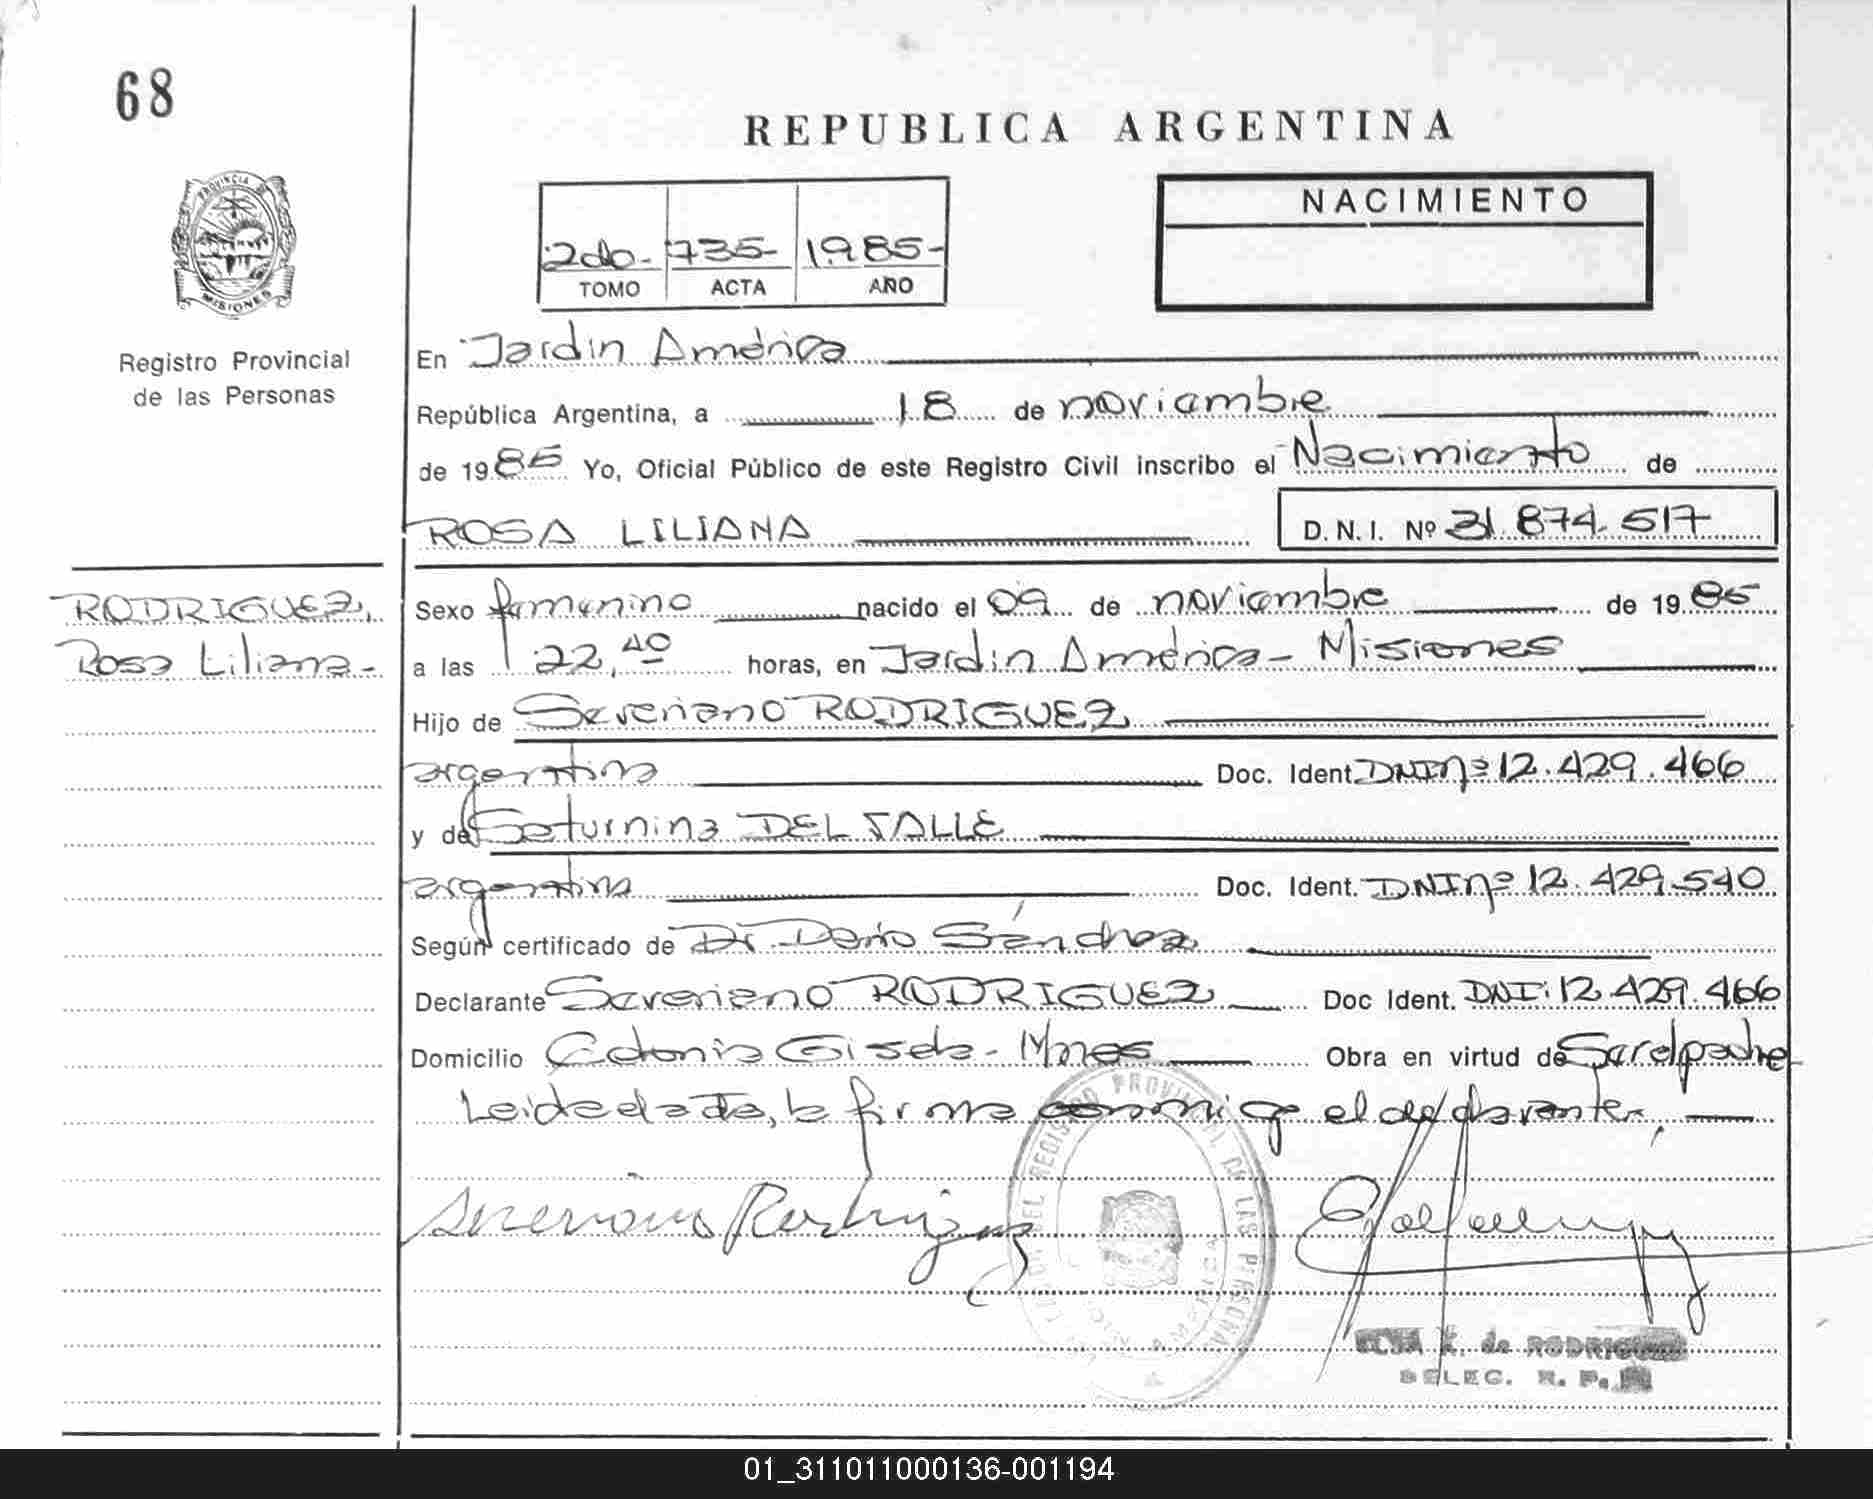 68
REPUBLICA ARGENTINA
PROVINCIA DE
MISIONES
Registro Provincial
de las Personas
2do- 735- 1985-
TOMO ACTA AÑO
NACIMIENTO
En Jardín América
República Argentina, a 18 de noviembre
de 1985 Yo, Oficial Público de este Registro Civil inscribo el Nacimiento de
ROSA LILIANA D.N.I. Nº 31.874.517
RODRIGUEZ,
Rosa Liliana-
Sexo femenino nacido el 09 de noviembre de 1985
a las 22,40 horas, en Jardín América- Misiones
Hijo de Severiano RODRIGUEZ
argentina Doc. Ident. DNI nº 12.429.466
y de Saturnina DEL VALLE
argentina Doc. Ident. DNI nº 12.429.540
Según certificado de Dr. Darío Sánchez
Declarante Severiano RODRIGUEZ Doc Ident. DNI: 12.429.466
Domicilio Colonia Gisela- Mnes Obra en virtud de Ser el padre
Leída el acta, la firma conmigo el declarante,
Severiano Rodriguez
REGISTRO PROVINCIAL DE LAS PERSONAS
ELSA K. de RODRIGUEZ
DELEG. R. P.
01_311011000136-001194